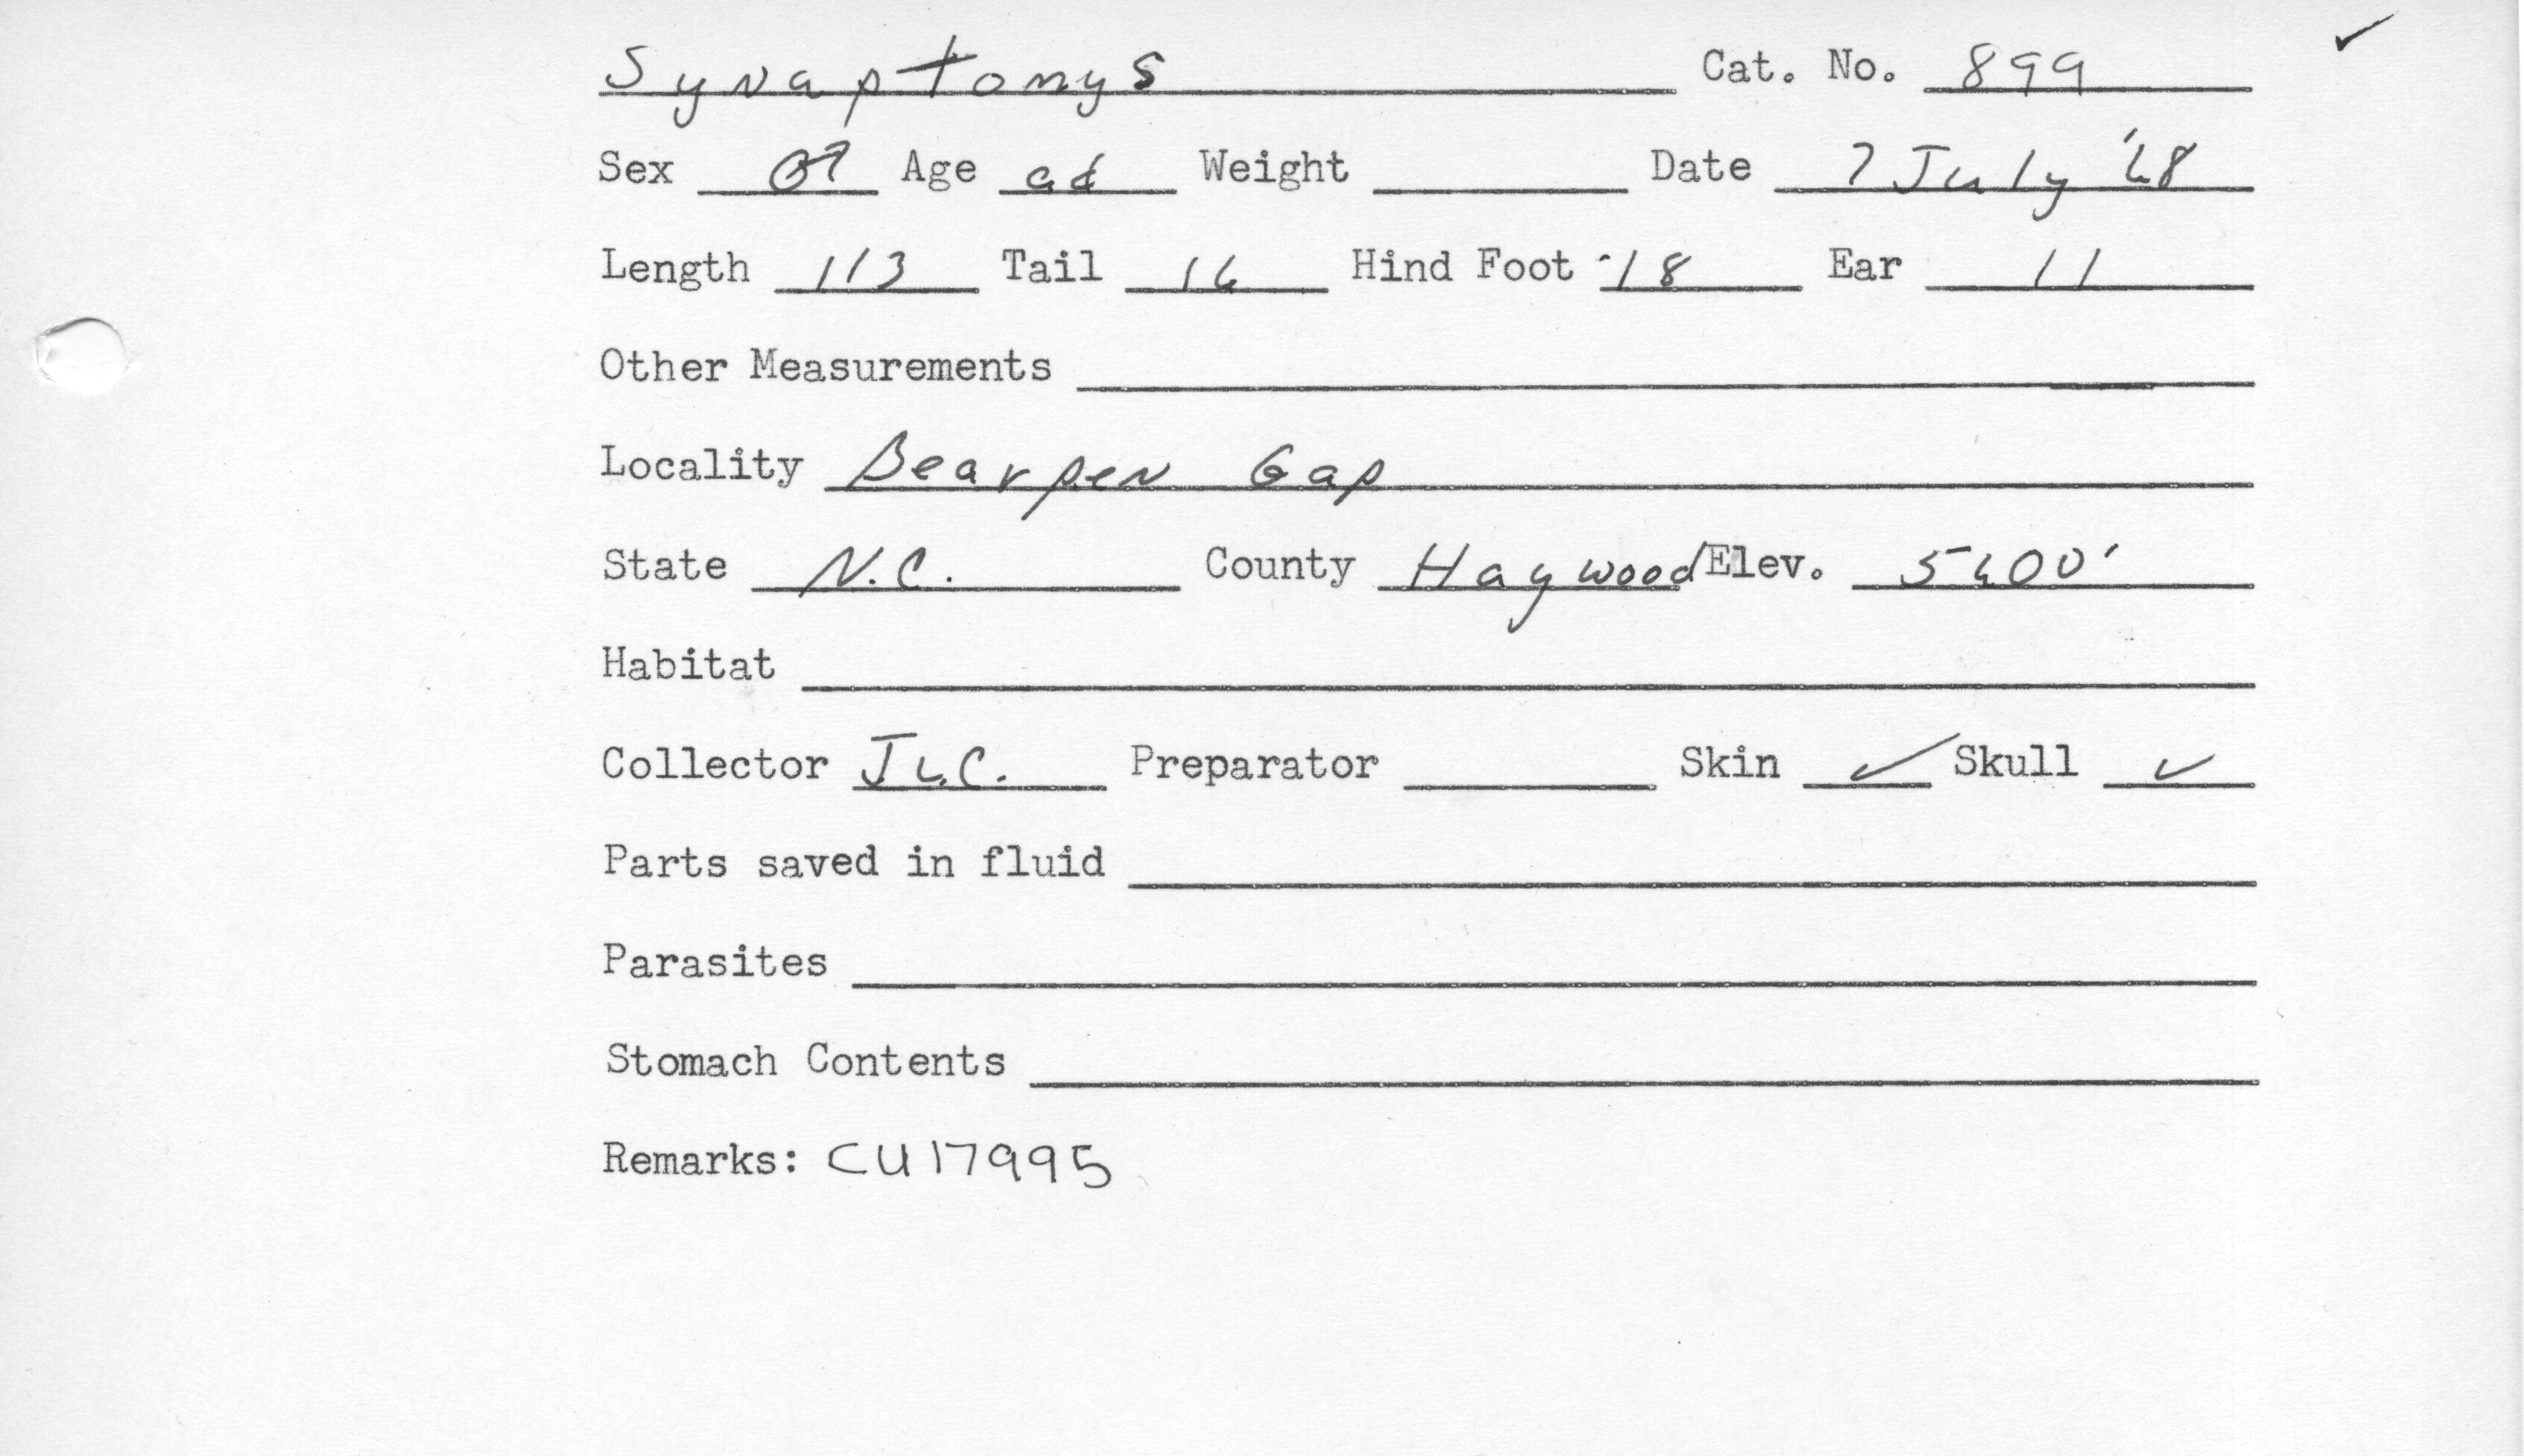 Synaptomys Cat. No. 899 ✓
Sex ♂ Age ad Weight Date 7 July '68
Length 113 Tail 16 Hind Foot 18 Ear 11
Other Measurements
Locality Bearpen Gap
State N.C. County Haywood Elev. 5600'
Habitat
Collector JLC. Preparator Skin ✓ Skull ✓
Parts saved in fluid
Parasites
Stomach Contents
Remarks: CU17995